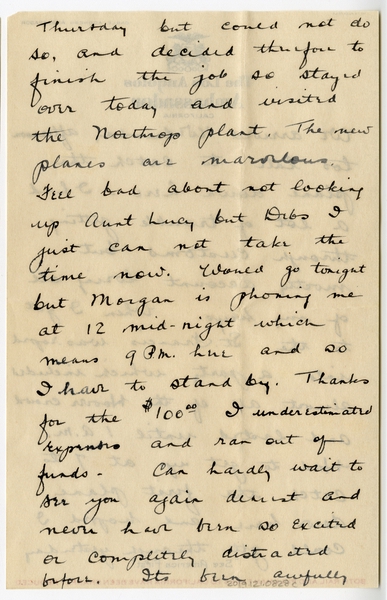 Thursday but could not do
so, and decided therfore to
finish the job so stayed
over today and visited
the Northrop plant. The new
planes are marvelous.
Feel bad about not looking
up Aunt Lucy but Debs I
just can not take the
time now. Would go tonight
but Morgan is phoning me
at 12 mid-night which
means 9 P.M. here and so
I have to stand by. Thanks
for the $100.00 I underestimated
expenses and ran out of
funds - Can hardly wait to
see you again dearest and
never have been so excited
or completely distracted
before. Its been awfully